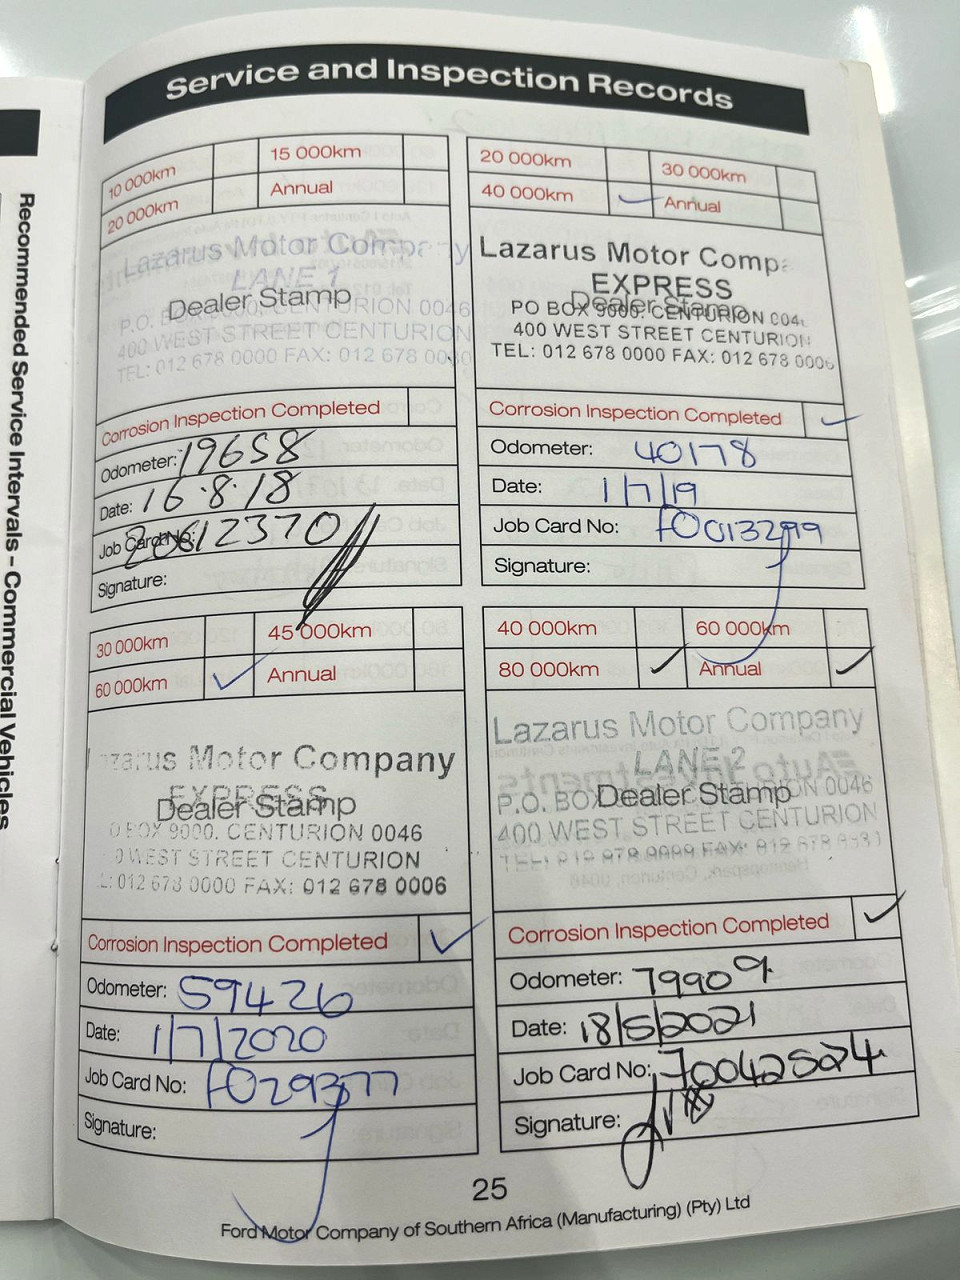 Service and Inspection Records
Recommended Service Intervals – Commercial Vehicles
10 000km
15 000km
20 000km
Annual
Lazarus Motor Company
LANE 1
Dealer Stamp
P.O. BOX 9000, CENTURION 0046
400 WEST STREET CENTURION
TEL: 012 678 0000 FAX: 012 678
Corrosion Inspection Completed
Odometer: 19658
Date: 16.8.18
Job Card No: 20612370
Signature:
20 000km
30 000km
40 000km
Annual
Lazarus Motor Comp
EXPRESS
Dealer Stamp
PO BOX 9000. CENTURION 004
400 WEST STREET CENTURION
TEL: 012 678 0000 FAX: 012 678 0006
Corrosion Inspection Completed
Odometer: 40178
Date: 1/7/19
Job Card No: F0013299
Signature:
30 000km
45 000km
60 000km
Annual
zarus Motor Company
EXPRESS
Dealer Stamp
O BOX 9000. CENTURION 0046
0 WEST STREET CENTURION
L: 012 678 0000 FAX: 012 678 0006
Corrosion Inspection Completed
Odometer: 59426
Date: 1/7/2020
Job Card No: F029377
Signature:
40 000km
60 000km
80 000km
Annual
Lazarus Motor Company
LANE 2
Dealer Stamp
P.O. BOX CENTURION 0046
400 WEST STREET CENTURION
Corrosion Inspection Completed
Odometer: 79909
Date: 18/5/2021
Job Card No: 70042524
Signature:
25
Ford Motor Company of Southern Africa (Manufacturing) (Pty) Ltd